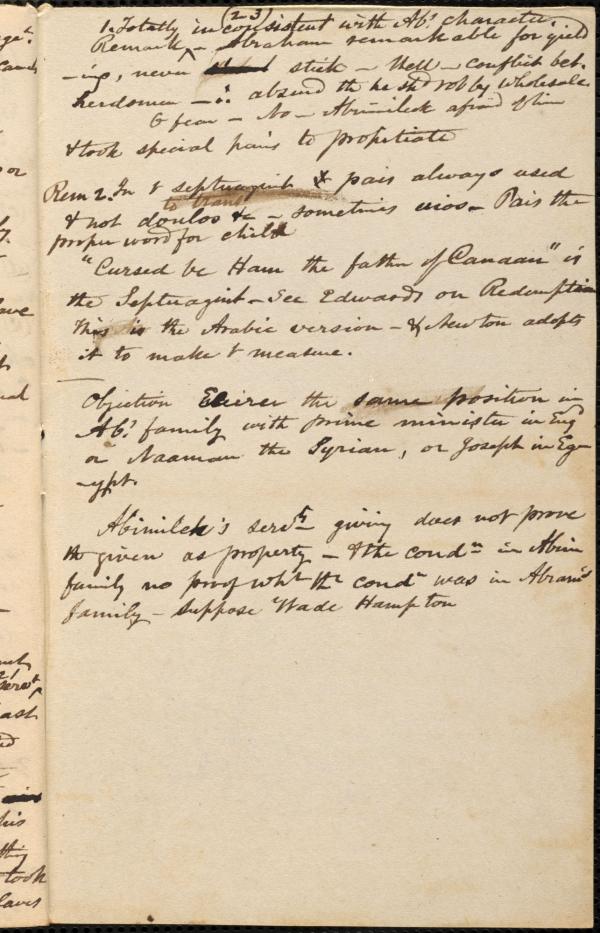 (2-3)
1. Totally inconsistent with Ab's character.
Remark - Abraham remarkable for yield
-ing, never stick - Well - conflict bet.
herdsmen - absurd th he shd rob by wholesale
& fear - No - Abimilek afraid of him
& took special pains to propitiate
Rem 2. In t septuagint pais always used
to trans
& not doulos &c - sometimes uios - Pais the
proper word for child
"Cursed be Ham the father of Canaan" is
the Septuagint - See Edwards on Redemption
This is the Arabic version - & Newton adopts
it to make t measure.
Objection Eliezer the same position in
Ab's family with prime minister in Eng
or Naaman the Syrian, or Joseph in Eg-
-ypt.
Abimilek's servts giving does not prove
th given as property - & the condn in Abim
family no proof wht th condn was in Abram's
family - suppose Wade Hampton
ast
his
thing
took
laves